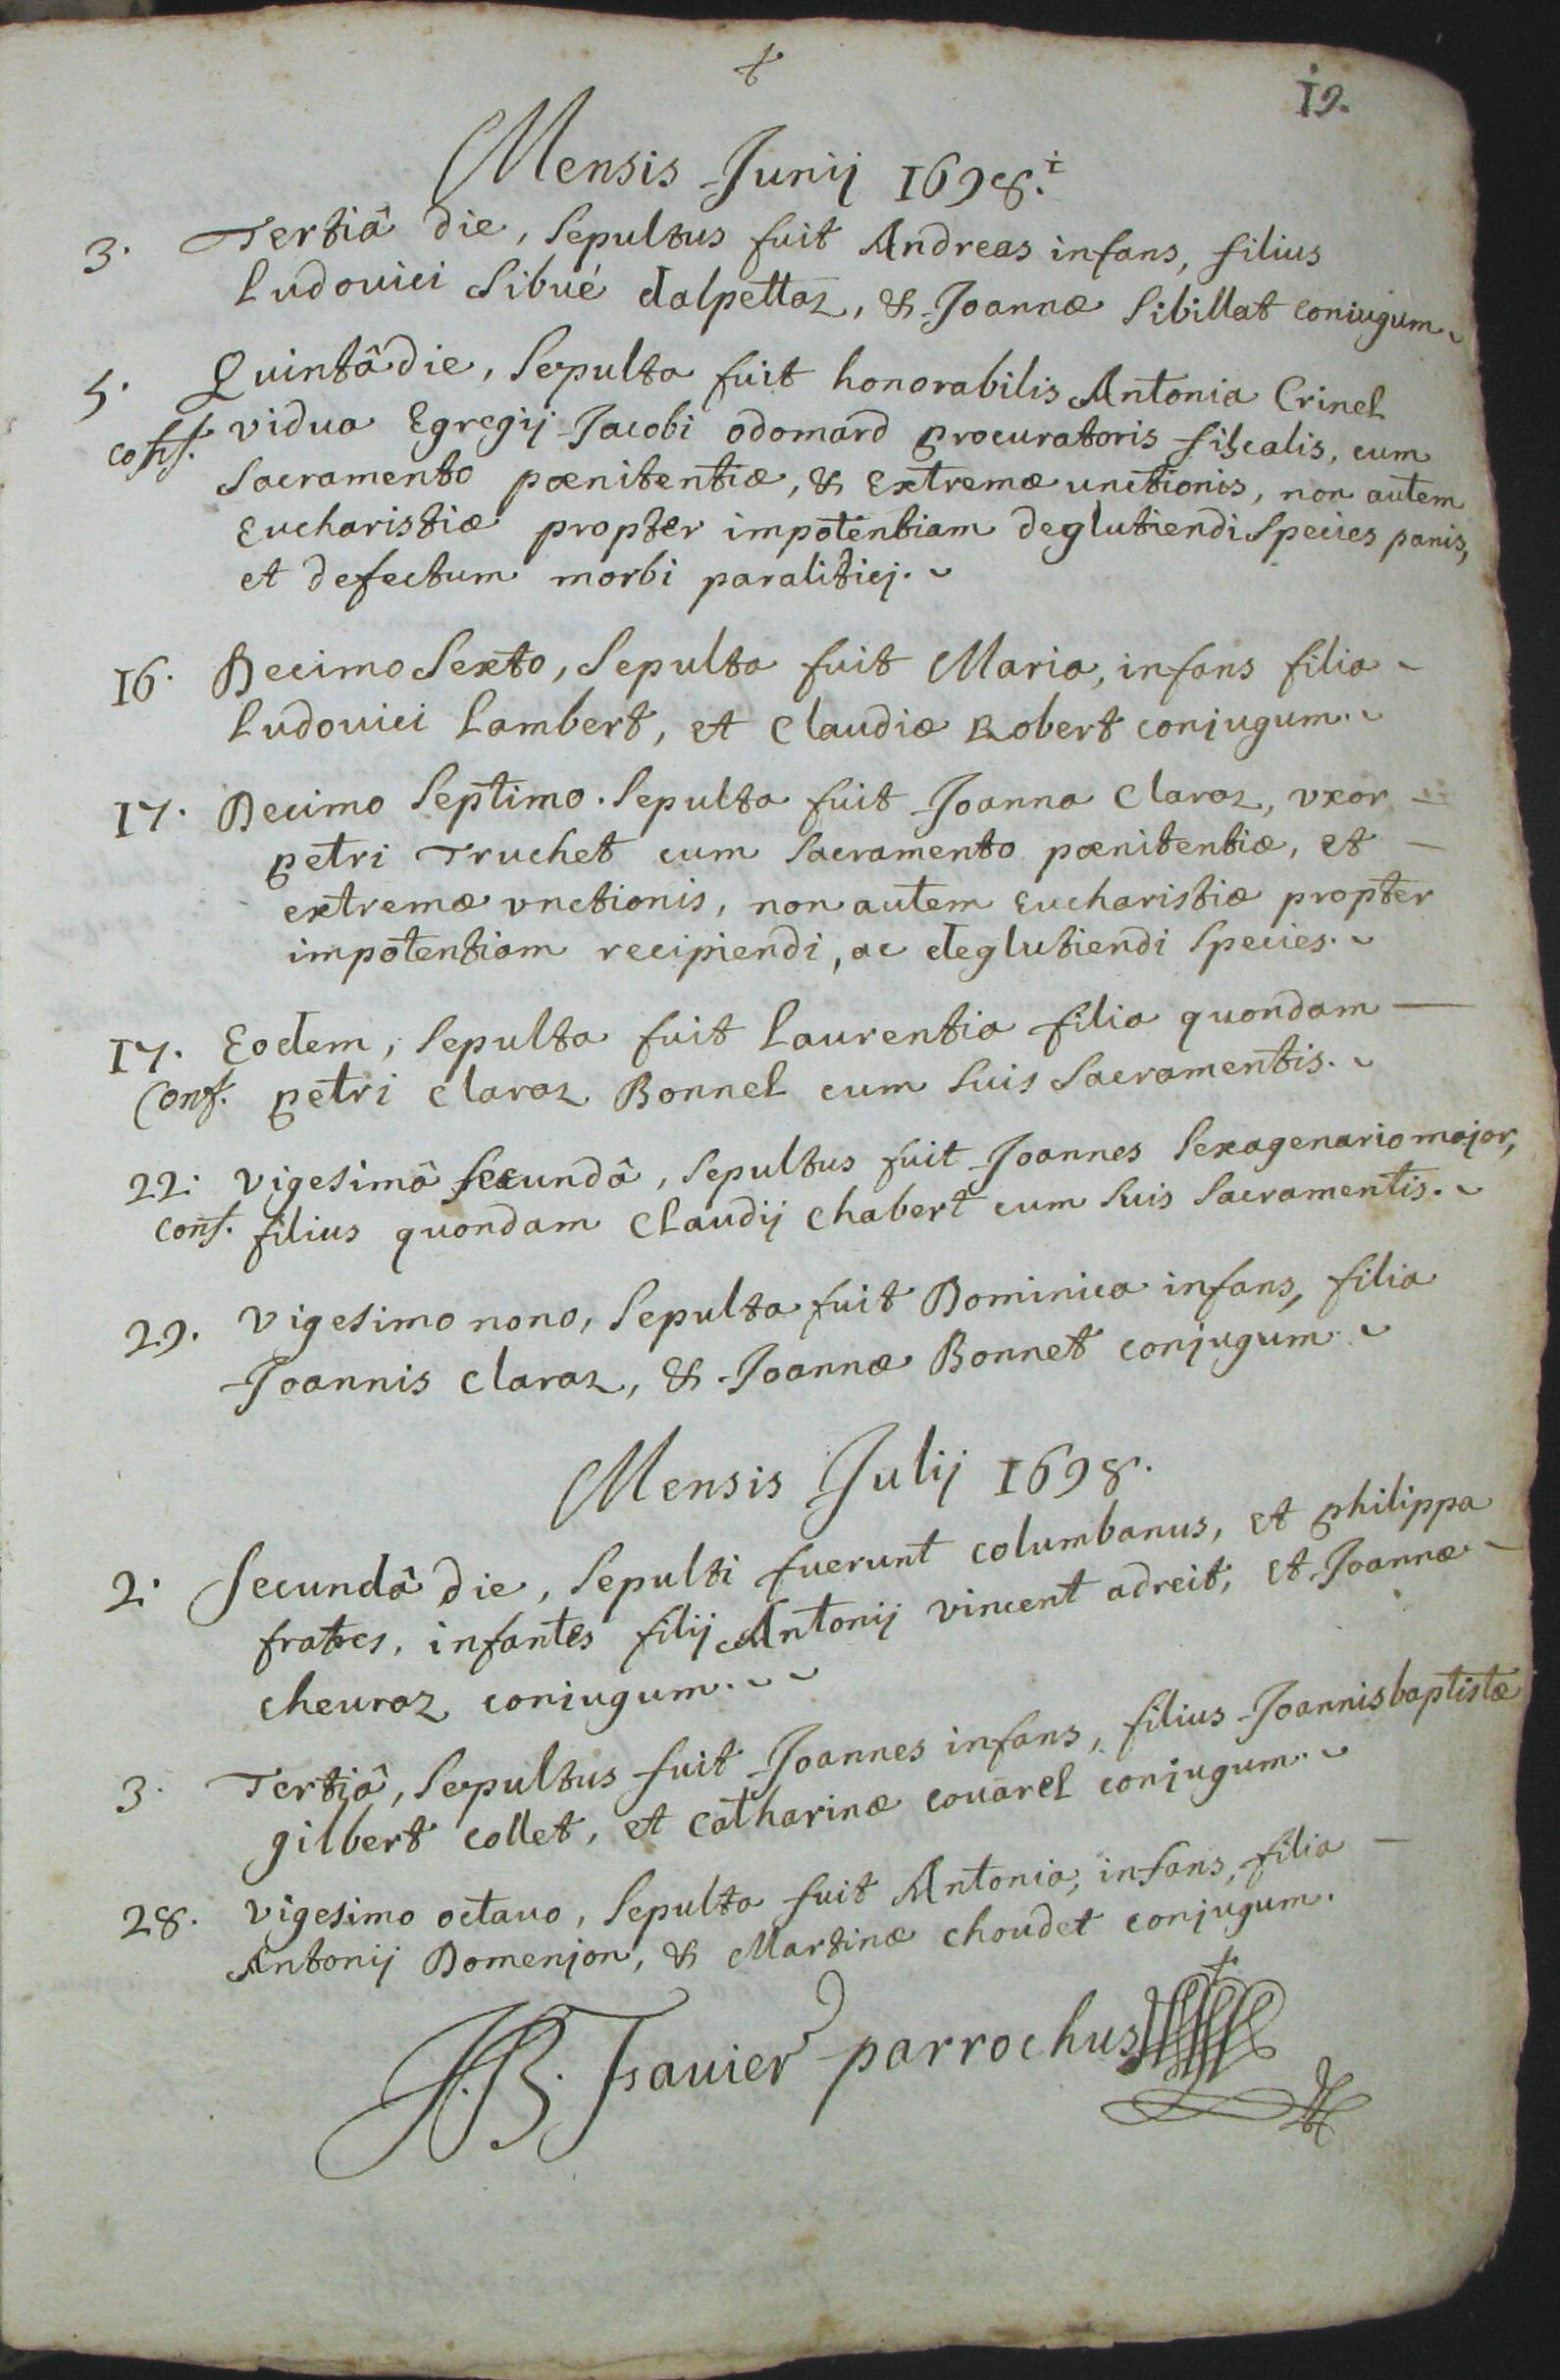 19.
Mensis Junij 1698.
3. Tertiâ die, Sepultus fuit Andreas infans, filius
Ludouici Sibué dalpettaz, & Joannæ Sibillat coniugum
5. Quintâ die, Sepulta fuit honorabilis Antonia Crinel
conf. vidua Egregij Jacobi odomard procuratoris fiscalis, cum
Sacramento pœnitentiæ, & Extremæ unctionis, non autem
Eucharistiæ propter impotentiam deglutiendi Species panis,
et defectum morbi paralitici.
16. Decimo Sexto, Sepulta fuit Maria, infans filia
Ludouici Lambert, et Claudiæ Robert conjugum.
17. Decimo Septimo. Sepulta fuit Joanna Claraz, vxor
petri Truchet cum Sacramento pœnitentiæ, et
extremæ vnctionis, non autem Eucharistiæ propter
impotentiam recipiendi, ac deglutiendi Species.
17. Eodem, Sepulta fuit Laurentia filia quondam
Conf. petri Claraz Bonnel cum Suis Sacramentis.
22. vigesimâ secundâ, Sepultus fuit Joannes Sexagenario major,
conf. filius quondam Claudij Chabert cum Suis Sacramentis.
29. Vigesimo nono, Sepulta fuit Dominica infans, filia
Joannis Claraz, & Joannæ Bonnet conjugum.
Mensis Julij 1698.
2. Secundâ die, Sepulti fuerunt columbanus, et philippa
fratres, infantes filij Antonij vincent adreit, et Joannæ
cheuraz coniugum.
3. Tertiâ, Sepultus fuit Joannes infans, filius Joannisbaptistæ
gilbert collet, et Catharinæ couarel conjugum.
28. vigesimo octauo, Sepulta fuit Antonia, infans, filia
Antonij Domenjon, & Martinæ choudet conjugum.
parrochus